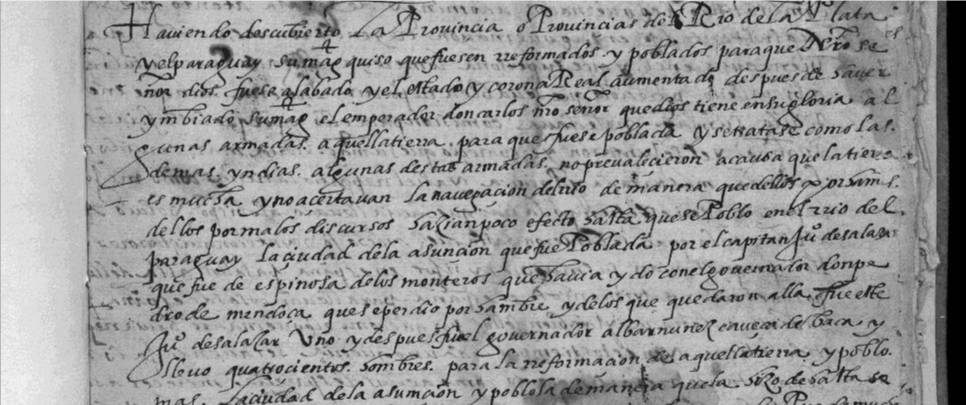 Haviendo descubierto La Provincia o Provincias del Rio de la Plata
y el paraguay su mag quiso que fuesen rreformados y poblados para que nro se
ñor dios fuese alabado y el estado y corona Real aumentado despues de haver
ymbiado su mag el emperador don carlos nro señor que dios tiene en su gloria al
gunas armadas a aquella tierra para que fuese poblada y se tratase como las
demas yndias algunas destas armadas no prevalecieron a causa que la tierra
es mucha y no acertavan la navegacion del rio de manera que dellos por ham
dellos por malos discursos hazian poco efecto hasta que se Poblo en el rrio del
paraguay la ciudad de la asuncion que fue Poblada por el capitan Juº de salazar
que fue de espinosa de los monteros que havia ydo con el governador don pe
dro de mendoça que se perdio por hambre y de los que quedaron alla fue este
Juº de salazar Uno y despues fue el governador albar nuñez caveza de baca y
llevo quatrocientos hombres para la rreformacion de aquella tierra y poblo
mas la ciudad de la asumcion y poblola de manera que la hizo de hasta se